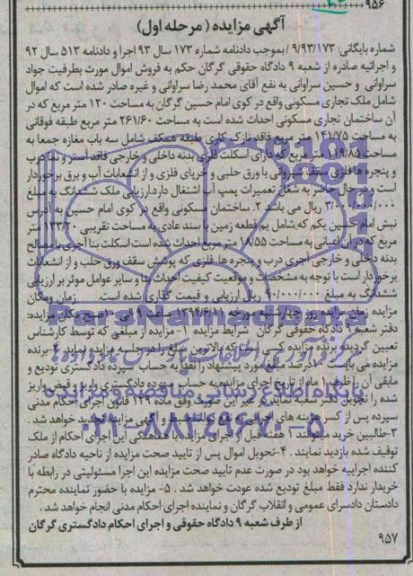 ۹۵۶
آگهی مزایده (مرحله اول)
شماره بایگانی: ۹/۹۳/۱۷۳ / بموجب دادنامه شماره ۱۷۳ سال ۹۳ اجرا و دادنامه ۵۱۳ سال ۹۲
و اجرائیه صادره از شعبه ۹ دادگاه حقوقی گرگان حکم به فروش اموال مورث بطرفیت جواد
سراوانی و حسین سراوانی به نفع آقای محمد رضا سراوانی و غیره صادر شده است که اموال
شامل ملک تجاری مسکونی واقع در کوی امام حسین گرگان به مساحت ۱۲۰ متر مربع که در
آن ساختمان تجاری مسکونی احداث شده است به مساحت ۲۶۱/۶۰ متر مربع طبقه فوقانی
به مساحت ۱۴۱/۷۵ متر مربع فاقد نازک کاری طبقه همکف شامل سه باب مغازه جمعا به
مساحت ۱۱۹/۸۵ متر مربع که دارای اسکلت فلزی بدنه داخلی و خارجی فاقد آستر و نما درب
و پنجره ها فلزی سقف شیروانی با ورق حلبی و خرپای فلزی و از انشعابات آب و برق برخوردار
است و در حال حاضر به شغل تعمیرات پمپ آب اشتغال دارد ارزیابی ملک ششدانگ به مبلغ
ریال می باشد ۲. ساختمان مسکونی واقع در کوی امام حسین به آدرس
نبش امام حسین یکم که شامل یک قطعه زمین با سند عادی به مساحت تقریبی ۱۳۳/۲۰ متر
مربع که در آن اعیانی به مساحت ۱۸/۵۵ متر مربع احداث شده است اسکلت بنا آجری با مصالح
بدنه داخلی و خارجی آجری درب و پنجره ها فلزی که پوشش سقف ورق حلب و از انشعابات
برخوردار است با توجه به مشخصات و موقعیت کیفیت احداث بنا و سایر عوامل موثر بر ارزیابی
ششدانگ به مبلغ ریال ارزیابی و قیمت گذاری شده است. زمان ومکان
مزایده
دفتر شعبه ۹ دادگاه حقوقی گرگان شرایط مزایده ۱- مزایده از مبلغی که توسط کارشناس
تعیین گردیده برنده مزایده کسی است که بالاترین مبلغ را در جلسه مزایده نماید ۲ برنده
مزایده می بایست ۱۰ درصد مبلغ مورد پیشنهاد را نقدا به حساب سپرده دادگستری تودیع و
مابقی آن را ظرف ۱ ماه از تاریخ اجرای مزایده به حساب سپرده دادگستری واریز و فیش واریز
شده را تحویل دفتر نماید در غیر این صورت وفق ماده ۱۲۹ قانون اجرای احکام مدنی
سپرده پس از کسر هزینه های اجرایی به نفع دولت ضبط و مزایده تجدید خواهد شد.
۳-طالبین خرید میتوانند ۱ هفته قبل از اجرای مزایده با هماهنگی این اجرای احکام از ملک
توقیف شده بازدید نمایند. ۴-تحویل اموال پس از تایید صحت مزایده از ناحیه دادگاه صادر
کننده اجراییه خواهد بود در صورت عدم تایید صحت مزایده این اجرا مسئولیتی در رابطه با
خریدار ندارد فقط مبلغ تودیع شده عودت خواهد شد. ۵- مزایده با حضور نماینده محترم
دادستان دادسرای عمومی و انقلاب گرگان و نماینده اجرای احکام مدنی انجام خواهد شد.
از طرف شعبه ۹ دادگاه حقوقی و اجرای احکام دادگستری گرگان
۹۵۷
پایگاه اطلاع رسانی مناقصه و مزایده
۰۲۱-۸۸۳۴۹۶۷۰-۵